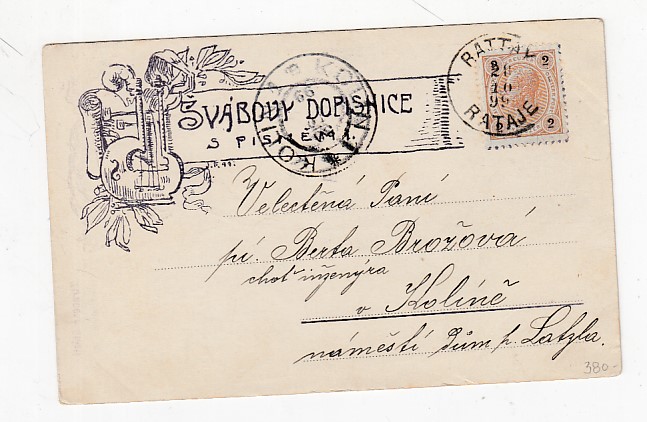 ŠVÁBOVY DOPISNICE
S PIS EM
KOLÍN
KOLIN
RATTAJ
28
10
99
RATAJE
2 2
2 2
Velectěná Paní
pí. Berta Brožová
choť inženýra
v Kolíně
náměstí dům p. Latzla.
380-